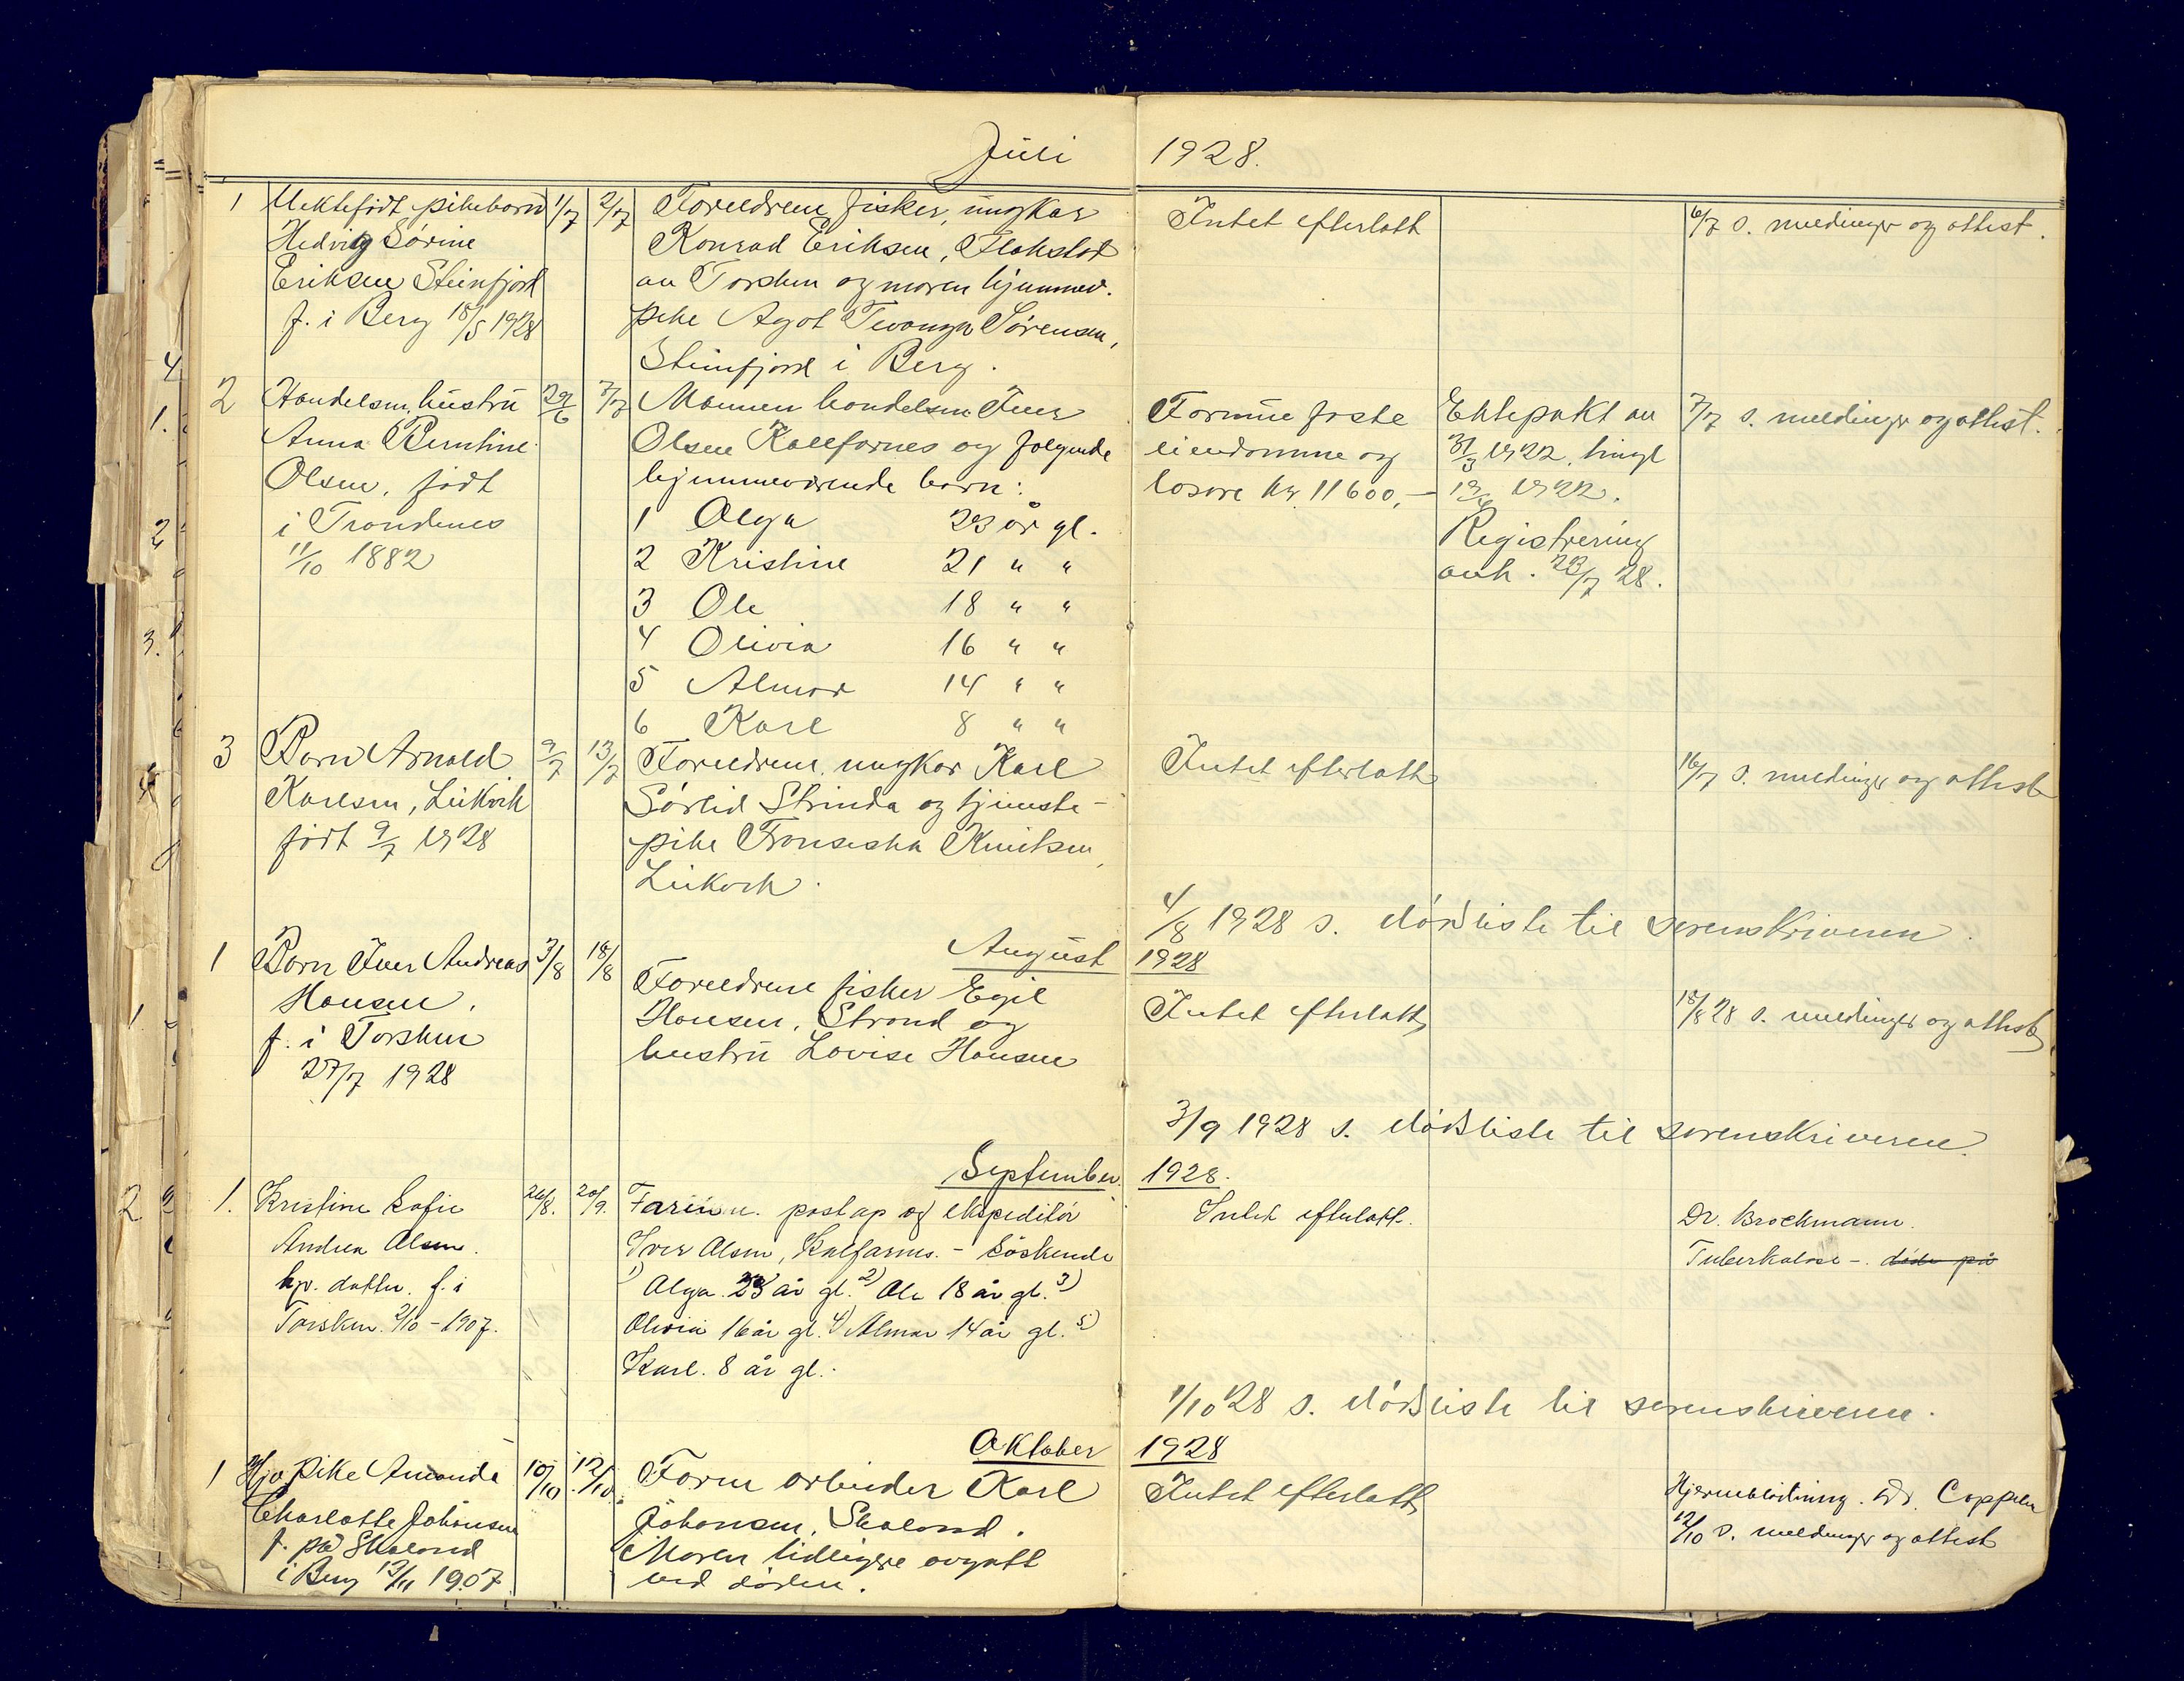 Juli 1928.
1 Uektefødt pikebarn 1/7 2/7 Foreldrene fisker, ungkar Intet efterlatt 6/7 s. meldinger og attest.
Hedvig Sørine Konrad Eriksen, Flakstad
Eriksen Steinfjord av Torsken og moren hjemmev.
f. i Berg 18/5 1928 pike Agot Sørensen,
Steinfjord i Berg.
2 Handelsm. hustru 29/6 7/7 Mannen handelsm Iver Formue faste Ektepakt av 7/7 s. meldinger og attest.
Anna Berntine Olsen Kalfarnes og følgende eiendomme og 31/3 1922, tingl
Olsen, født hjemmeværende barn: løsøre kr 11600,- 19/6 1922.
i Trondenes 1 Olga 23 år gl. Registrering
11/10 1882 2 Kristine 21 " " avh. 23/7 28.
3 Ole 18 " "
4 Olivia 16 " "
5 Almar 14 " "
6 Karl 8 " "
3 Barn Arnold 9/7 13/7 Foreldrene, ungkar Karl Intet efterlatt 16/7 s. meldinger og attest
Karlsen, Leikvik Sørlid Strinda og tjeneste-
født 9/7 1928 pike Fransiska Knutsen,
Leikvik.
4/8 1928 s. dødsliste til sorenskriveren.
August 1928
1 Barn Iver Andreas 3/8 18/8 Foreldrene fisker Egil Intet efterlatt 18/8 28 s. meldinger og attest
Hansen, Hansen, Strand og
f. i Torsken hustru Lovise Hansen
27/7 1928
3/9 1928 s. dødsliste til sorenskriveren.
September 1928.
1. Kristine Sofie 26/8. 20/9. Faren postap og ekspeditør Intet efterlatt. Dr. Brochmann.
Andrea Olsen. Iver Olsen, Kalfarnes. - Søskende Tuberkulose -. døde på
hp. datter. f. i 1) Olga 23 år gl. 2) Ole 18 år gl. 3)
Torsken. 2/10 - 1907. Olivia 16 år gl. 4) Almar 14 år gl. 5)
Karl. 8 år gl.
1/10 28 s. dødsliste til sorenskriveren.
Oktober 1928
1 Hjv pike Amanda 10/10 12/10 Faren arbeider Karl Intet efterlatt Hjerneblødning. Dr. Coppelen
Charlotte Johansen Johansen, Skaland. 12/10 s. meldinger og attest
f. på Skaland Moren tidligere avgått
i Berg 13/11 1907 ved døden.
4
1.
2
3.
4
1
2